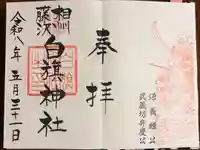 奉拝
相州
藤沢
白旗神社
令和八年五月三十一日
源義経公
武蔵坊弁慶公